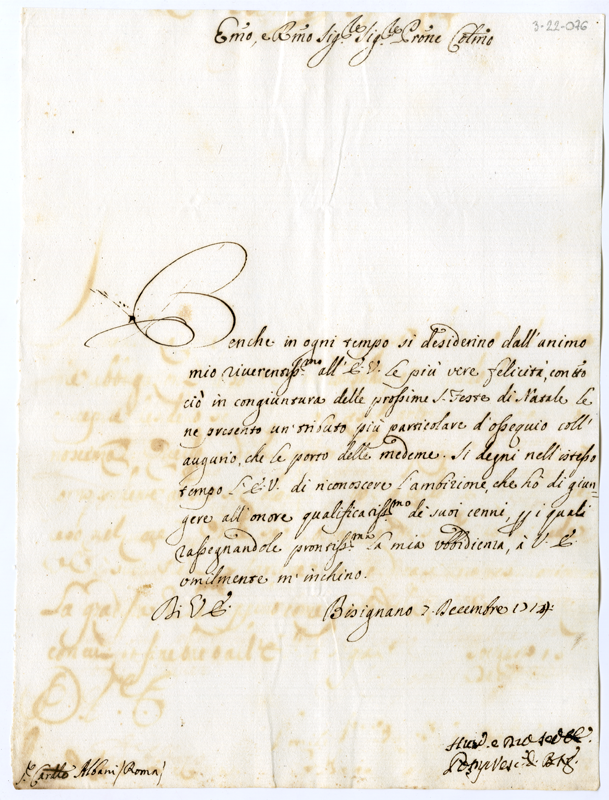 3-22-076
Emo, e Rmo Sig.re Sig.re Prone Colmo
Benche in ogni tempo si desiderino dall'animo
mio riverentiss.mo all'E.V. le più vere felicità, con tto
ciò in congiuntura delle prossime S. Feste di Natale le
ne presento un tributo più particolare d'ossequio coll'
augurio, che le porto delle medeme. Si degni nell'istesso
tempo L'E.V. di riconoscere l'ambizione, che hò di giun=
gere all'onore qualificatiss.mo de suoi cenni, p i quali
rassegnandole prontiss.ma la mia ubbidienza, à V.E.
omilmente m'inchino.
Di V.E. Bisignano 7 Decembre 1714:
Vesc.o di
Albani (Roma)